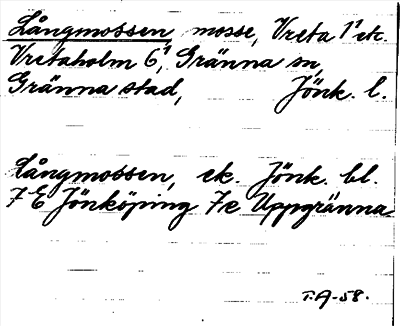 Långmossen, mosse, Vreta 1¹ etc.
Vretaholm 6¹, Gränna sn,
Gränna stad, Jönk. l.
Långmossen, ek. Jönk. bl.
7 E Jönköping 7e Uppgränna
T.A-58.